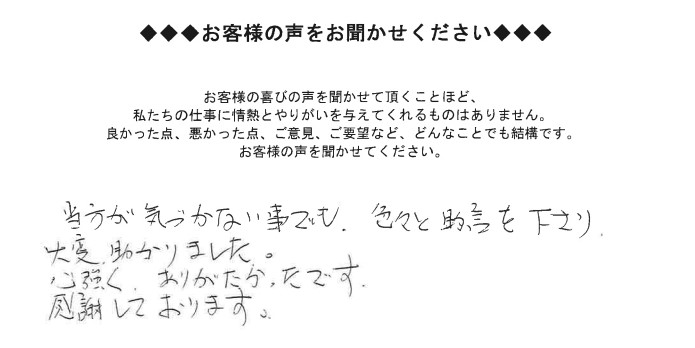 ◆◆◆お客様の声をお聞かせください◆◆◆
お客様の喜びの声を聞かせて頂くことほど、
私たちの仕事に情熱とやりがいを与えてくれるものはありません。
良かった点、悪かった点、ご意見、ご要望など、どんなことでも結構です。
お客様の声を聞かせてください。
当方が気づかない事でも、色々と助言を下さり、
大変、助かりました。
心強く、ありがたかったです。
感謝しております。